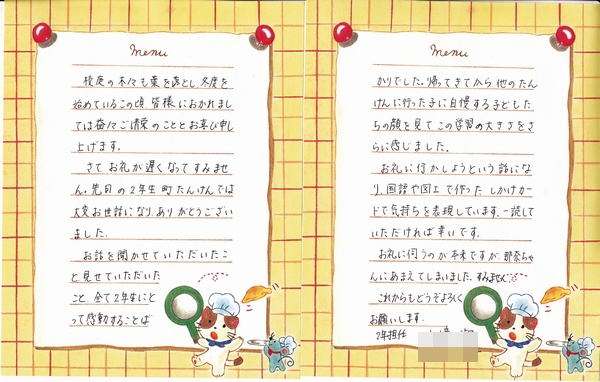 menu
校庭の木々も葉を落とし、冬度を
始めているこの頃、皆様におかれまし
ては益々ご清栄のこととお喜び申し
上げます。
さて、お礼が遅くなってすみませ
ん。先日の2年生町たんけんでは
大変お世話になり、ありがとうござい
ました。
お話を聞かせていただいたこ
と見せていただいた
こと、全て2年生にと
って感動することば
menu
かりでした。帰ってきてから他のたん
けんに行った子に自慢する子どもた
ちの顔を見て、この学習の大きさをさ
らに感じました。
お礼に何かしようという話にな
り、国語や図工で作ったしかけカー
ドで気持ちを表現しています。一読して
いただければ幸いです。
お礼に伺うのが本来ですが、那奈ちゃ
んにあまえてしまいました。すみません。
これからもどうぞよろしく
お願いします。
2年担任